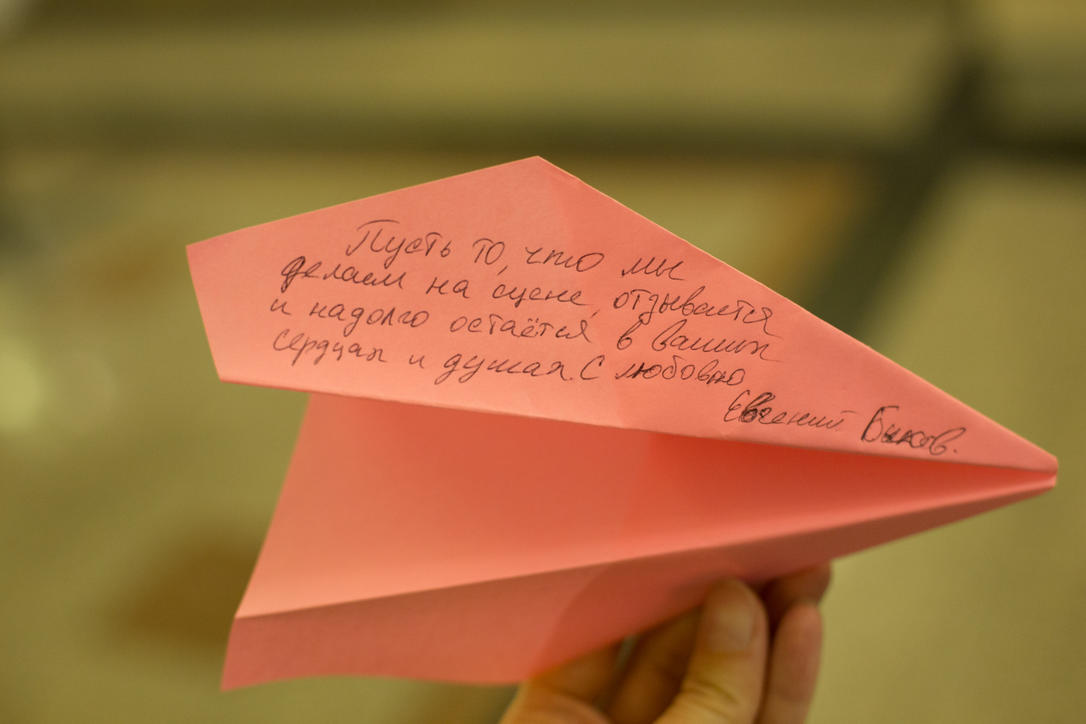 Пусть то, что мы
делаем на сцене, отзывается
и надолго остаётся в ваших
сердцах и душах. С любовью
Евгений Быков.